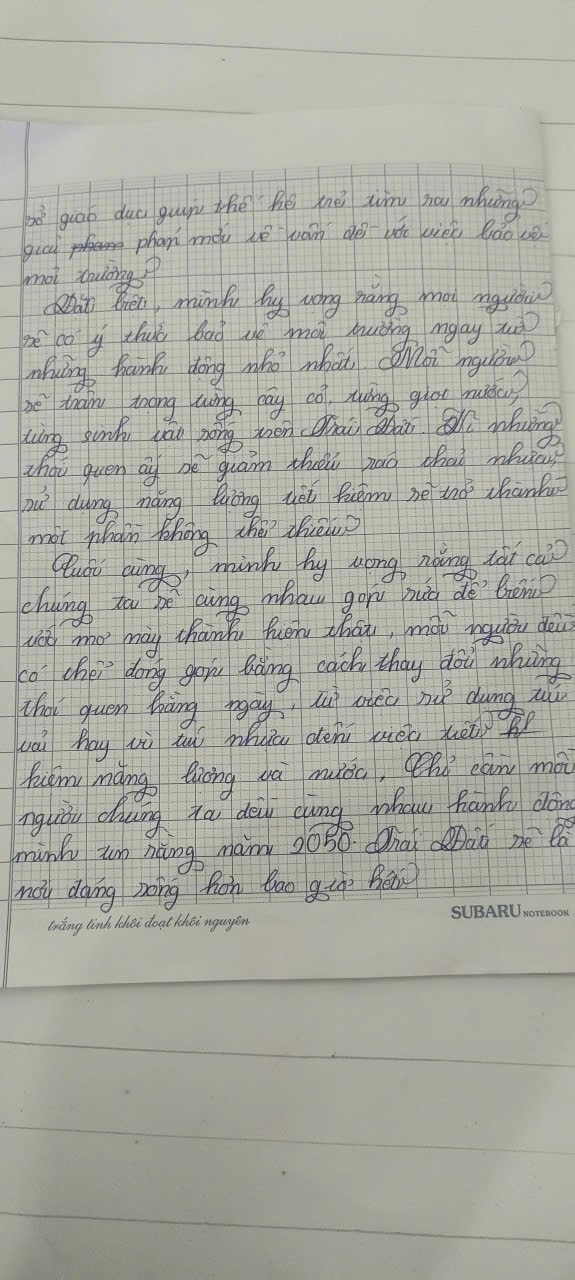 sẽ giáo dục giúp thế hệ trẻ tìm ra những
giải phám pháp mới về vấn đề với việc bảo vệ
môi trường.
Đặc biệt, mình hy vọng rằng mọi người
sẽ có ý thức bảo vệ môi trường ngay từ
những hành động nhỏ nhất. Mỗi người
sẽ trân trọng từng cây cỏ, từng giọt nước,
từng sinh vật sống trên Trái Đất. Vì những
thói quen ấy sẽ giảm thiểu rác thải nhựa,
sử dụng năng lượng tiết kiệm sẽ trở thành
một phần không thể thiếu.
Cuối cùng, mình hy vọng rằng tất cả
chúng ta sẽ cùng nhau góp sức để biến
ước mơ này thành hiện thực, mỗi người đều
có thể đóng góp bằng cách thay đổi những
thói quen hằng ngày, từ việc sử dụng túi
vải hay vì túi nhựa đến việc tiết
kiệm năng lượng và nước, Chỉ cần mỗi
người chúng ta đều cùng nhau hành động
mình tin rằng năm 2050. Trái Đất sẽ là
nơi đáng sống hơn bao giờ hết.
trắng tinh khôi đoạt khôi nguyên
SUBARU NOTEBOOK